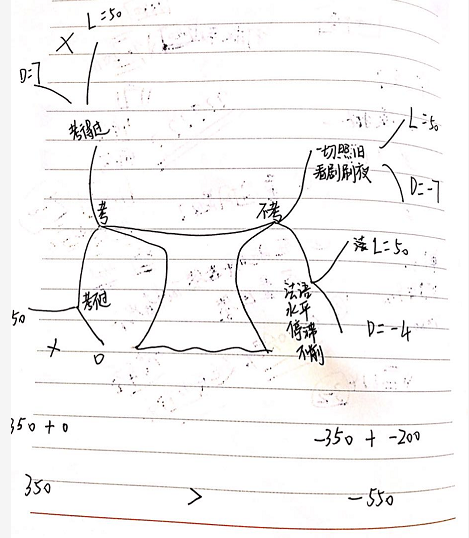 L=50
X
D=7
考得过
考
考不过
50
X
0
不考
一切照旧
看剧刷夜
L=50
D=-7
法 L=50
法语
水平
停滞
不前
D=-4
350 + 0
-350 + -200
350 > -550